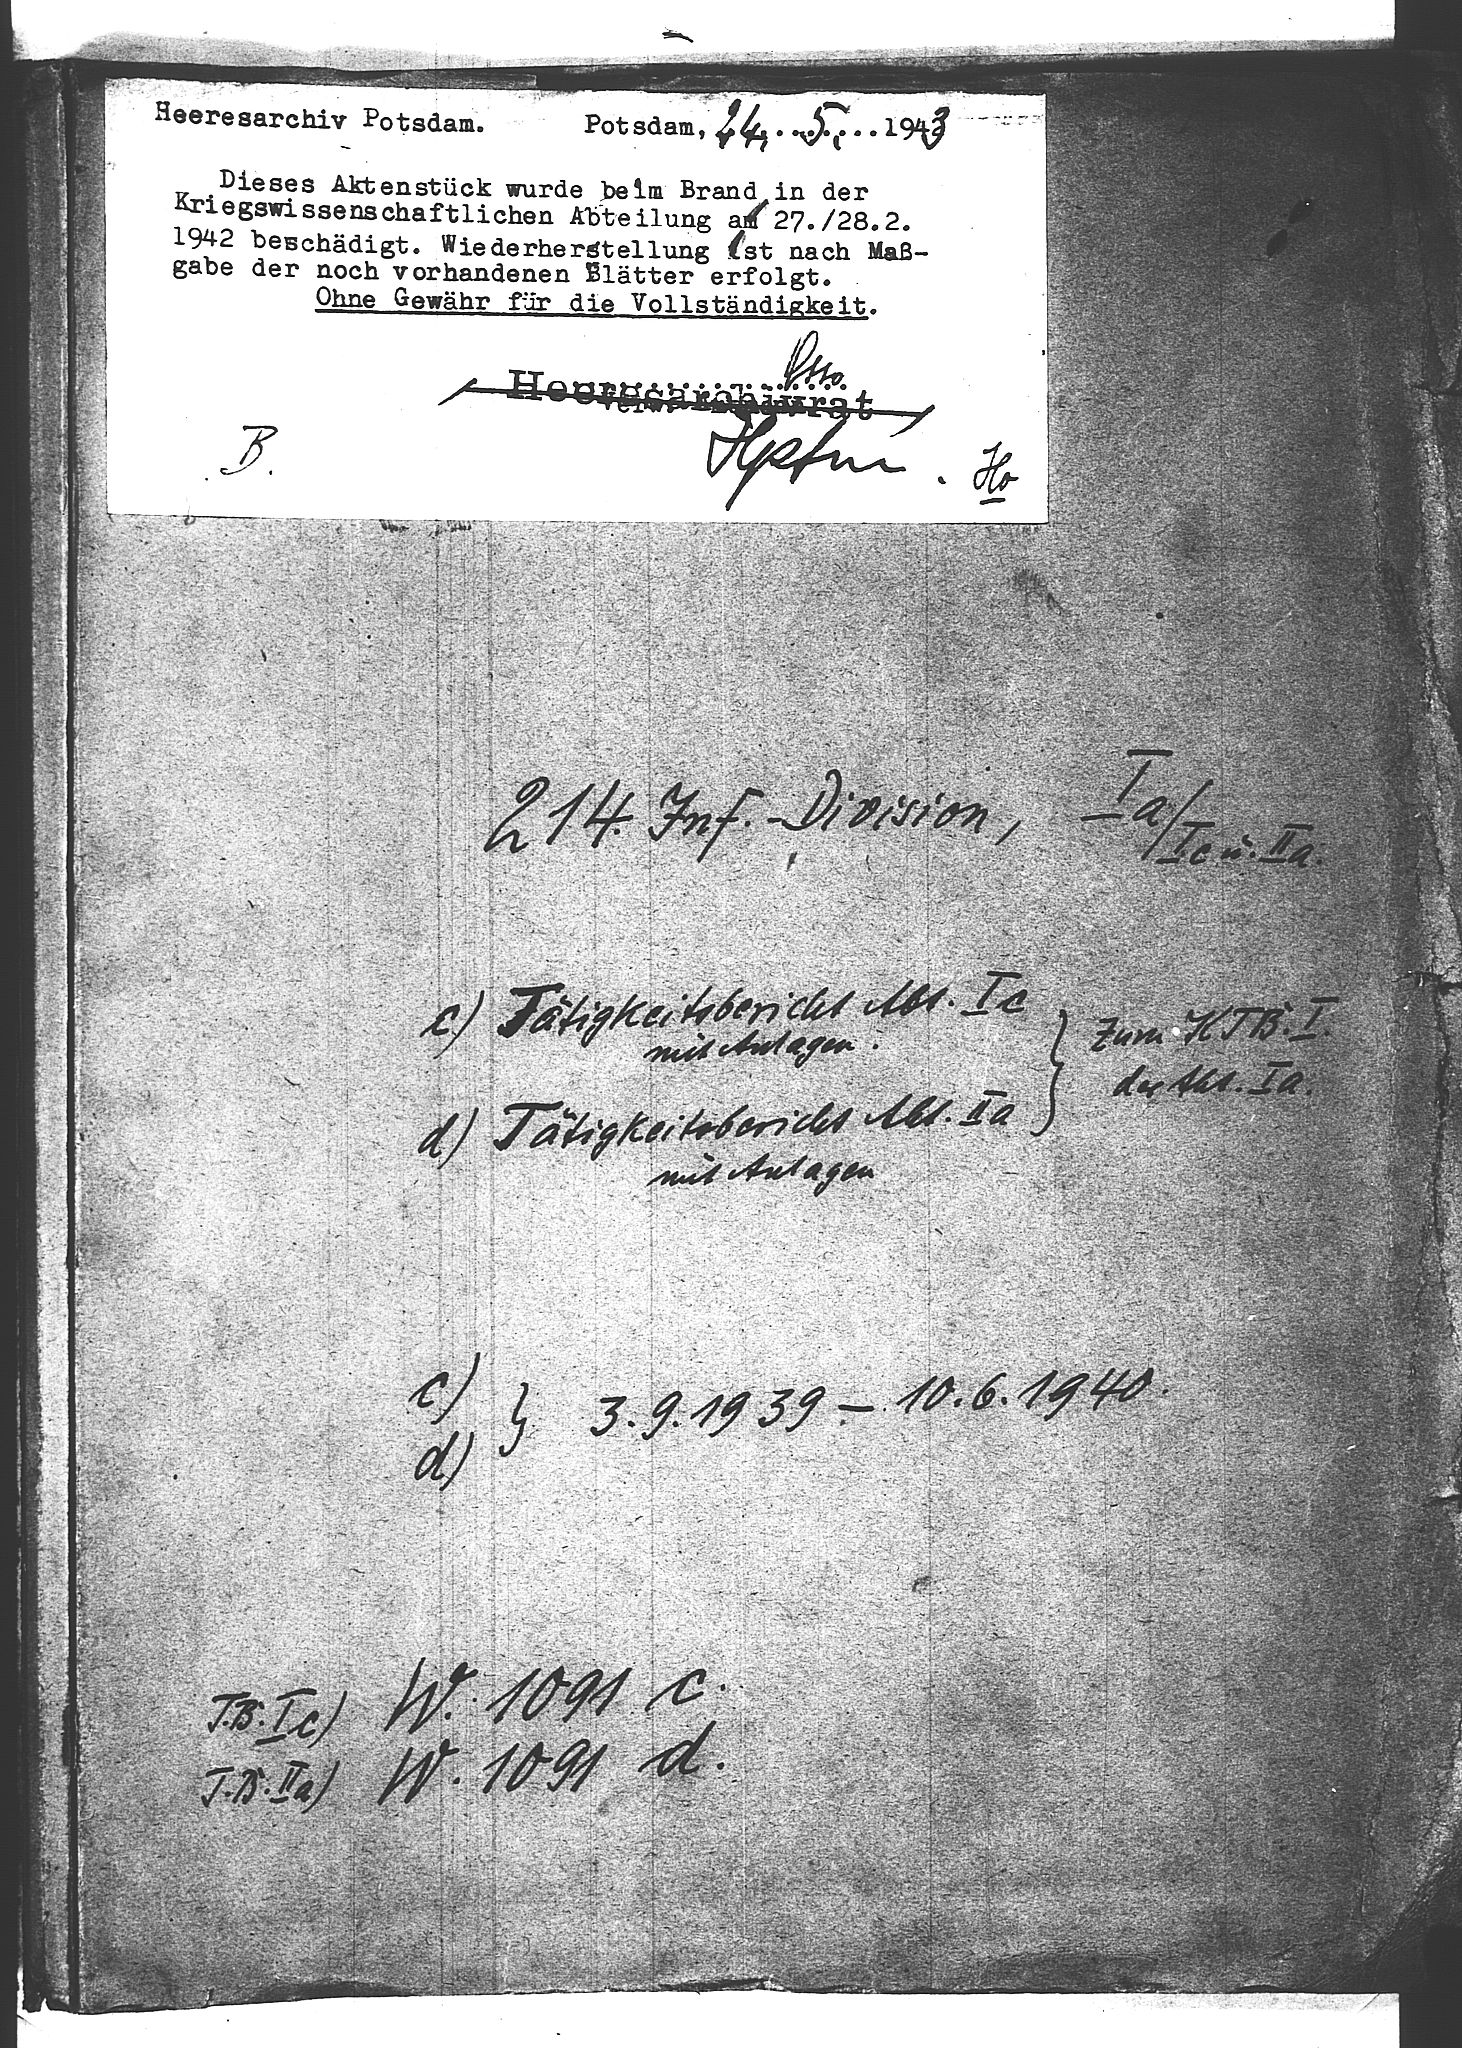 Heeresarchiv Potsdam. Potsdam, 24. 5. 1943
Dieses Aktenstück wurde beim Brand in der
Kriegswissenschaftlichen Abteilung am 27./28.2.
1942 beschädigt. Wiederherstellung ist nach Maß-
gabe der noch vorhandenen Blätter erfolgt.
Ohne Gewähr für die Vollständigkeit.
Heeresarchivrat
B.
214. Inf.-Division, Ia/
Ic u. IIa.
c) Tätigkeitsbericht Abt. Ic
mit Anlagen.
d) Tätigkeitsbericht Abt. IIa
mit Anlagen
} zum KTB. I.
der Abt. Ia.
c)
d)
} 3.9.1939 – 10.6.1940.
T.B. Ic) W. 1091 c.
T.B. IIa) W. 1091 d.